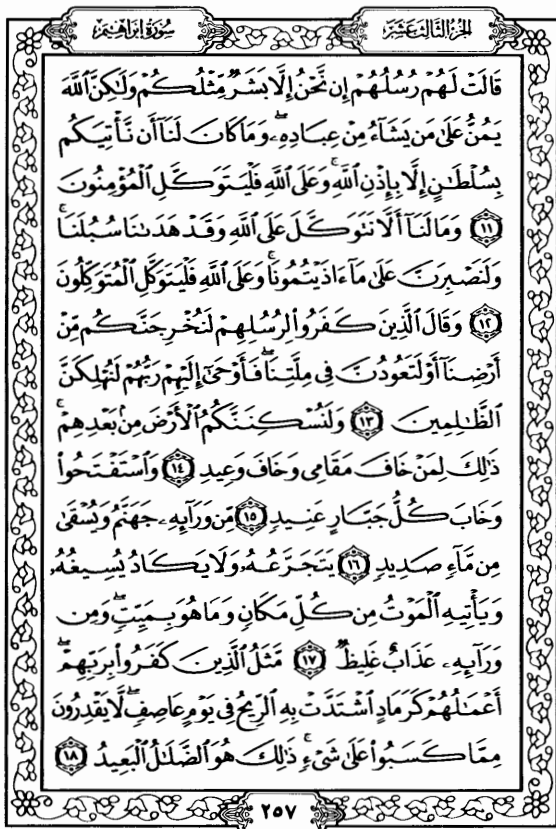 سُورَةُ إِبْرَاهِيمَ
الجُزْءُ الثَّالِثَ عَشَرَ
قَالَتْ لَهُمْ رُسُلُهُمْ إِن نَّحْنُ إِلَّا بَشَرٌ مِّثْلُكُمْ وَلَٰكِنَّ ٱللَّهَ
يَمُنُّ عَلَىٰ مَن يَشَآءُ مِنْ عِبَادِهِۦۖ وَمَا كَانَ لَنَآ أَن نَّأْتِيَكُم
بِسُلْطَٰنٍ إِلَّا بِإِذْنِ ٱللَّهِۚ وَعَلَى ٱللَّهِ فَلْيَتَوَكَّلِ ٱلْمُؤْمِنُونَ
١١ وَمَا لَنَآ أَلَّا نَتَوَكَّلَ عَلَى ٱللَّهِ وَقَدْ هَدَىٰنَا سُبُلَنَاۚ
وَلَنَصْبِرَنَّ عَلَىٰ مَآ ءَاذَيْتُمُونَاۚ وَعَلَى ٱللَّهِ فَلْيَتَوَكَّلِ ٱلْمُتَوَكِّلُونَ
١٢ وَقَالَ ٱلَّذِينَ كَفَرُوا۟ لِرُسُلِهِمْ لَنُخْرِجَنَّكُم مِّنْ
أَرْضِنَآ أَوْ لَتَعُودُنَّ فِى مِلَّتِنَاۖ فَأَوْحَىٰٓ إِلَيْهِمْ رَبُّهُمْ لَنُهْلِكَنَّ
ٱلظَّٰلِمِينَ ١٣ وَلَنُسْكِنَنَّكُمُ ٱلْأَرْضَ مِنۢ بَعْدِهِمْۚ
ذَٰلِكَ لِمَنْ خَافَ مَقَامِى وَخَافَ وَعِيدِ ١٤ وَٱسْتَفْتَحُوا۟
وَخَابَ كُلُّ جَبَّارٍ عَنِيدٍ ١٥ مِّن وَرَآئِهِۦ جَهَنَّمُ وَيُسْقَىٰ
مِن مَّآءٍ صَدِيدٍ ١٦ يَتَجَرَّعُهُۥ وَلَا يَكَادُ يُسِيغُهُۥ
وَيَأْتِيهِ ٱلْمَوْتُ مِن كُلِّ مَكَانٍ وَمَا هُوَ بِمَيِّتٍۖ وَمِن
وَرَآئِهِۦ عَذَابٌ غَلِيظٌ ١٧ مَّثَلُ ٱلَّذِينَ كَفَرُوا۟ بِرَبِّهِمْۖ
أَعْمَٰلُهُمْ كَرَمَادٍ ٱشْتَدَّتْ بِهِ ٱلرِّيحُ فِى يَوْمٍ عَاصِفٍۖ لَّا يَقْدِرُونَ
مِمَّا كَسَبُوا۟ عَلَىٰ شَىْءٍۚ ذَٰلِكَ هُوَ ٱلضَّلَٰلُ ٱلْبَعِيدُ ١٨
٢٥٧